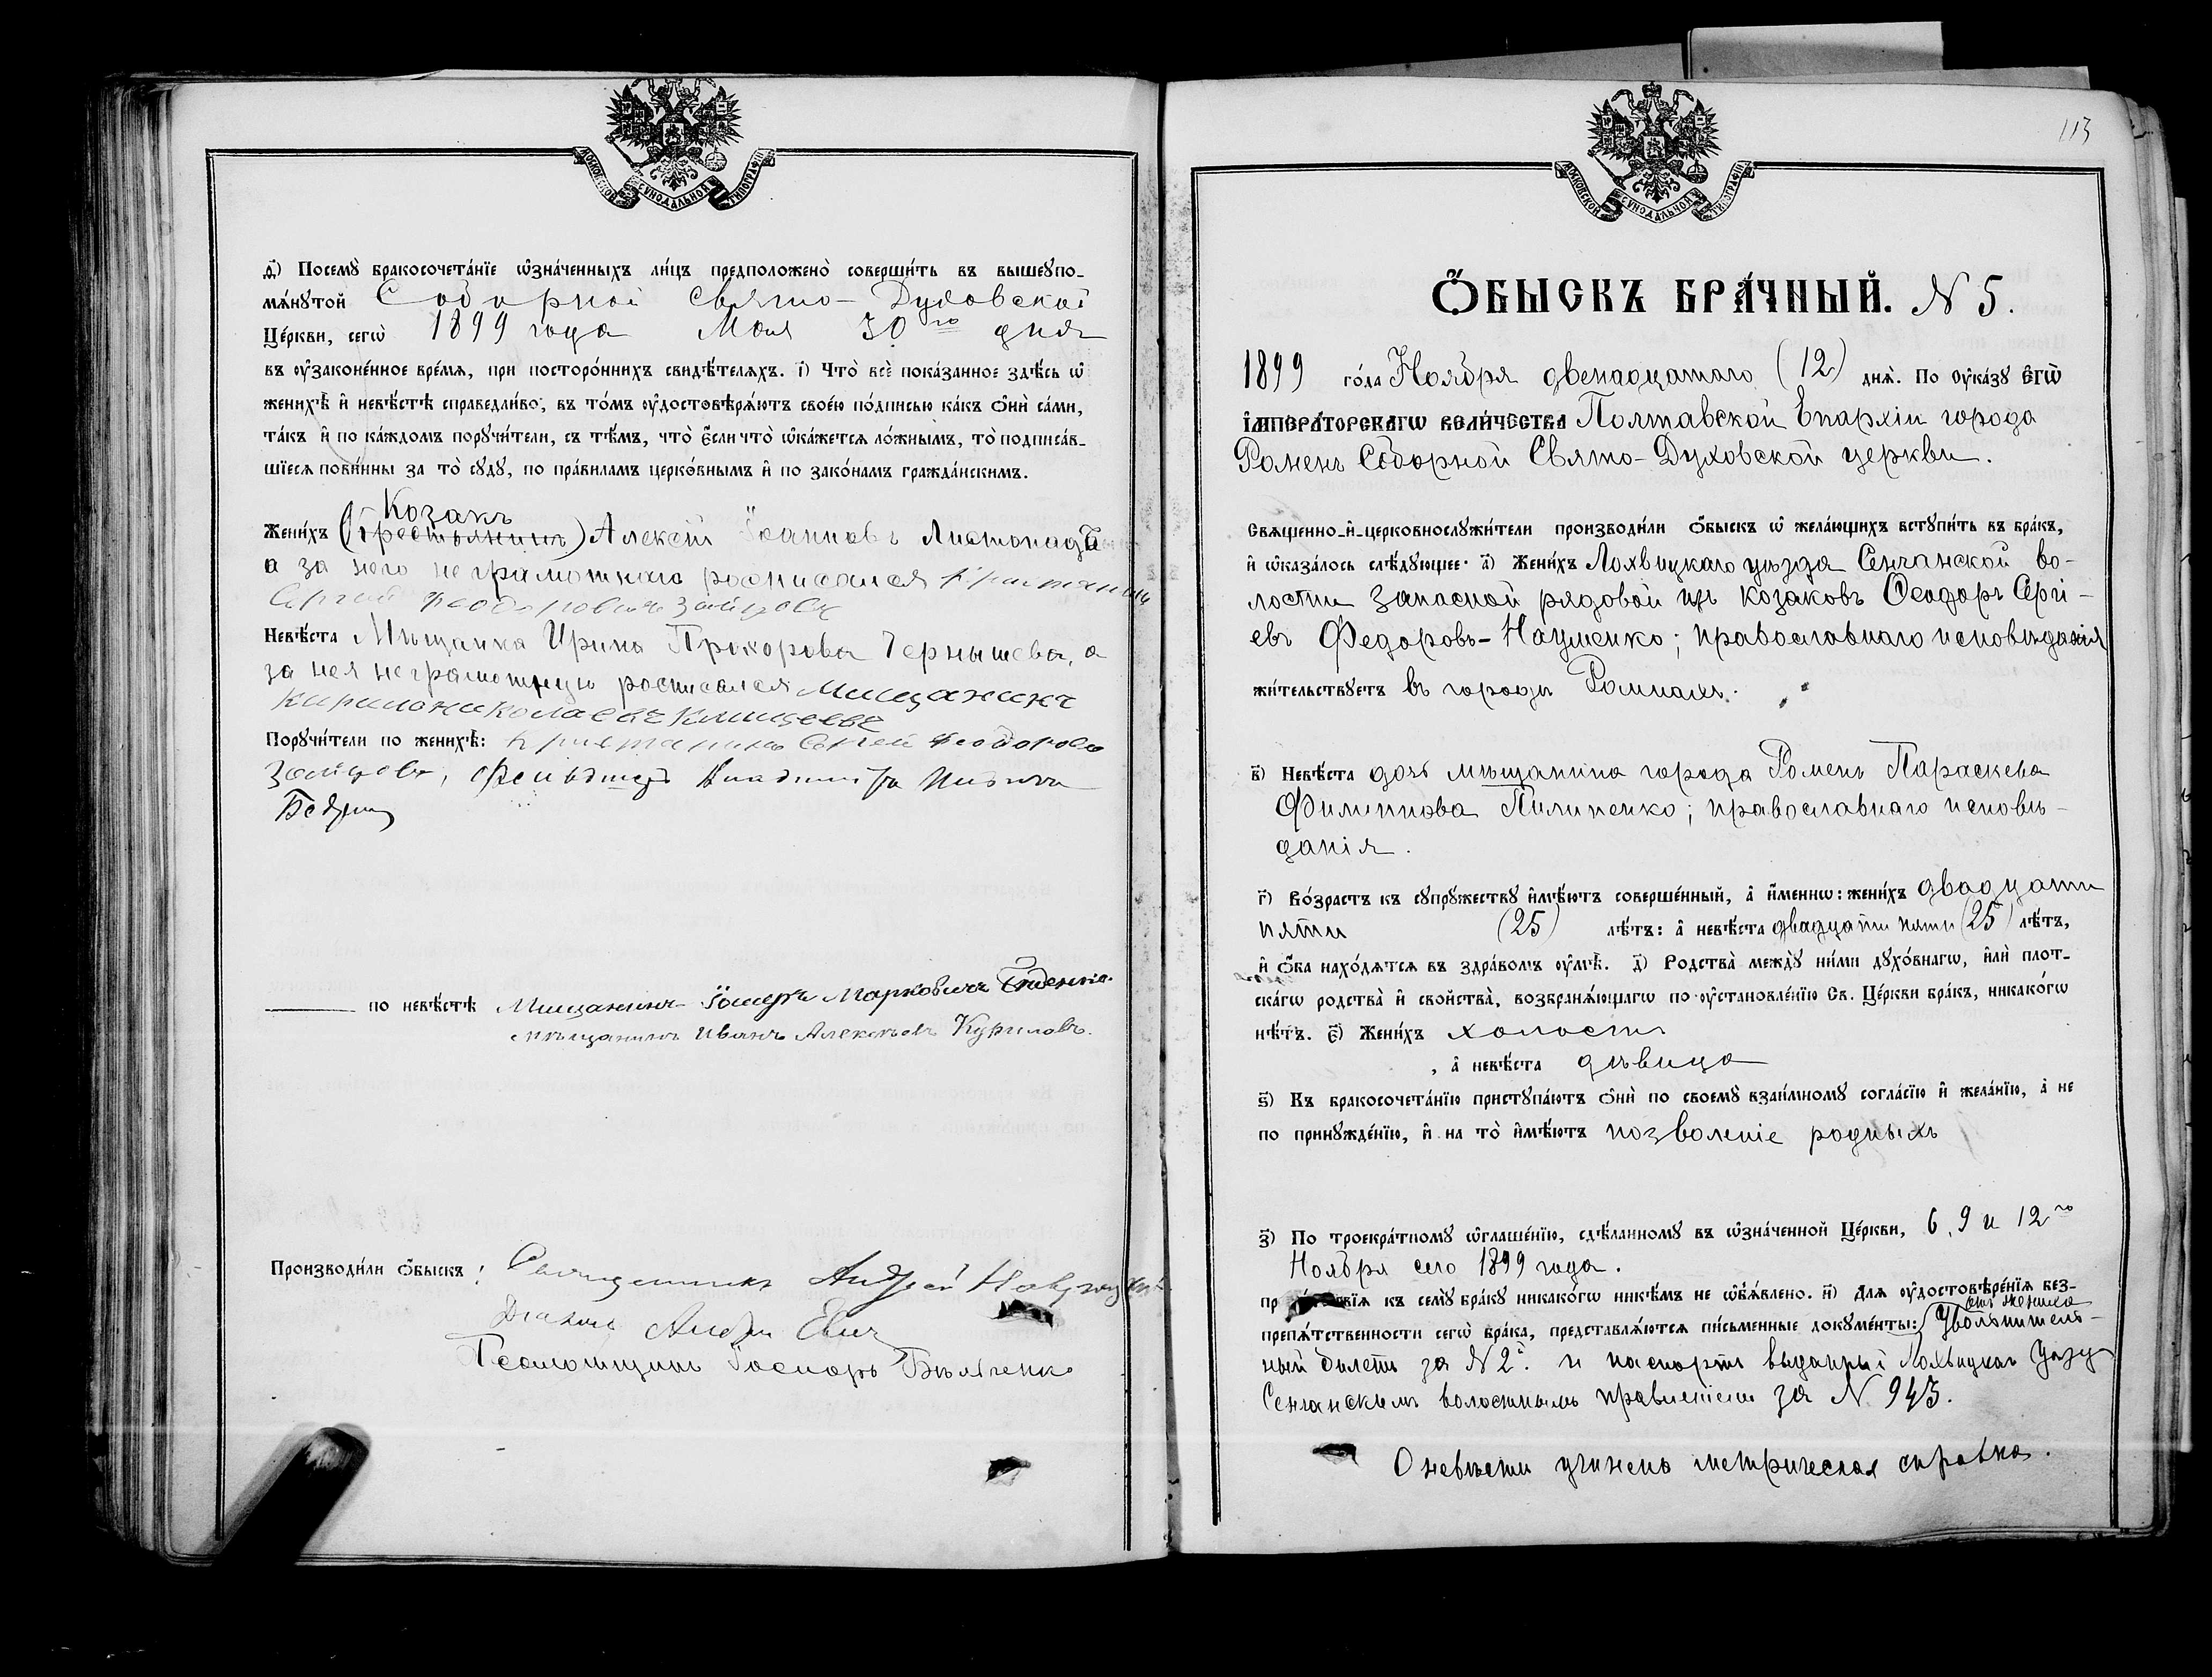 МОСКОВСКОЙ СѴНОДАЛЬНОЙ ТИПОГРАФІИ
ѳ҃) Посемꙋ̀ бракосочета́нїе ѡ҆зна́ченныхъ ли́цъ предположено̀ соверши́ть въ вышеꙋпо-
мя́нꙋтой Соборной Свято-Духовской
Це́ркви, сегѡ̀ 1899 года Мая 30го дня
въ ᲂу҆законе́нное вре́мя, при посторо́ннихъ свидѣ́теляхъ. і҃) Что̀ всѐ пока́занное здѣ́сь ѡ҆
женихѣ̀ и҆ невѣ́стѣ справедли́во, въ то́мъ ᲂу҆достовѣря́ютъ свое́ю по́дписью ка́къ ѻ҆нѝ са́ми,
та́къ и҆ по ка́ждомъ порꙋчи́тели, съ тѣ́мъ, что̀ є҆́сли что̀ ѡ҆ка́жется ло́жнымъ, то̀ подписа́в-
шїеся пови́нны за то̀ сꙋдꙋ̀, по пра́виламъ церко́внымъ и҆ по зако́намъ гражда́нскимъ.
Козакъ
Жени́хъ (Крестьянинъ) Алексѣй Іоанновъ Листопадъ
а за него неграмотнаго росписался
Сергей Феодоровичъ Зайцовъ
Невѣ́ста Мѣщанка Ирина Прохорова Чернышева, а
за нея неграмотную росписался Мищанинъ
Порꙋчи́тели по женихѣ̀: Сергей Феодоровъ
Зайцовъ,
по невѣ́стѣ Мищанинъ Марковичъ
мѣщанинъ Иванъ Алексѣевъ Куриловъ.
Производи́ли ѻ҆́быскъ: Священникъ Андрей
Діаконъ Андрей
Псаломщикъ
113
МОСКОВСКОЙ СѴНОДАЛЬНОЙ ТИПОГРАФІИ
Ѻ҆́БЫСКЪ БРА́ЧНЫЙ. N 5.
1899 го́да Ноября двенадцатаго (12) дня̀. По ᲂу҆ка́зꙋ Є҆гѡ̀
І҆мпера́торскагѡ вели́чества Полтавской Епархіи города
Роменъ Соборной Свято-Духовской церкви.
Свѧщенно-и҆-церковнослꙋжи́тели производи́ли ѻ҆́быскъ ѡ҆ жела́ющихъ встꙋпи́ть въ бра́къ,
и҆ ѡ҆каза́лось слѣ́дꙋющее: а҃) Жени́хъ Лохвицкаго уѣзда Сенчанской во-
лости запасной рядовой изъ козаковъ Ѳеодоръ Сергі-
евъ Федоровъ-Науменко; православнаго исповѣданія
жи́тельствꙋетъ въ городѣ Ромнахъ.
в҃) Невѣ́ста дочь мѣщанина города Роменъ Параскева
Филиппова Пилипенко; православнаго исповѣ-
данія.
г҃) Во́зрастъ къ сꙋпрꙋжествꙋ и҆мѣ́ютъ соверше́нный, а҆̀ и҆́меннѡ: жени́хъ двадцати
пяти (25) лѣ́тъ: а҆̀ невѣ́ста двадцати пяти (25) лѣ́тъ,
и҆ ѻ҆́ба нахо́дятся въ здра́вомъ ᲂу҆мѣ̀. д҃) Родства̀ междꙋ̀ ни́ми дꙋхо́внагѡ, и҆лѝ плот-
ска́гѡ родства̀ и҆ свойства̀, возбраня́ющагѡ по ᲂу҆становле́нїю Св. Це́ркви бра́къ, никако́гѡ
нѣ́тъ. є҃) Жени́хъ холостъ
, а҆̀ невѣ́ста дѣвица
ѕ҃) Къ бракосочета́нїю пристꙋпа́ютъ ѻ҆нѝ по своемꙋ̀ взаи́мномꙋ согла́сїю и҆ жела́нїю, а҆̀ не
по принꙋжде́нїю, и҆ на то̀ и҆мѣ́ютъ позволеніе родныхъ
з҃) По троекра́тномꙋ ѡ҆глаше́нїю, сдѣ́ланномꙋ въ ѡ҆зна́ченной Це́ркви, 6, 9 и 12го
Ноября сего 1899 года.
къ семꙋ̀ бра́кꙋ никако́гѡ никѣ́мъ не ѡ҆б̾я́влено. и҃) Для ᲂу҆достовѣре́нїя без-
препя́тственности сегѡ̀ бра́ка, представля́ются пи́сьменные докꙋме́нты: отъ жениха Увольнитель-
ный билетъ за N 2й. и паспортъ выданный Лохвицкаго Уѣзда
Сенчанскимъ волостнымъ правленіемъ за N. 943.
О невѣстѣ учинена метрическая справка.